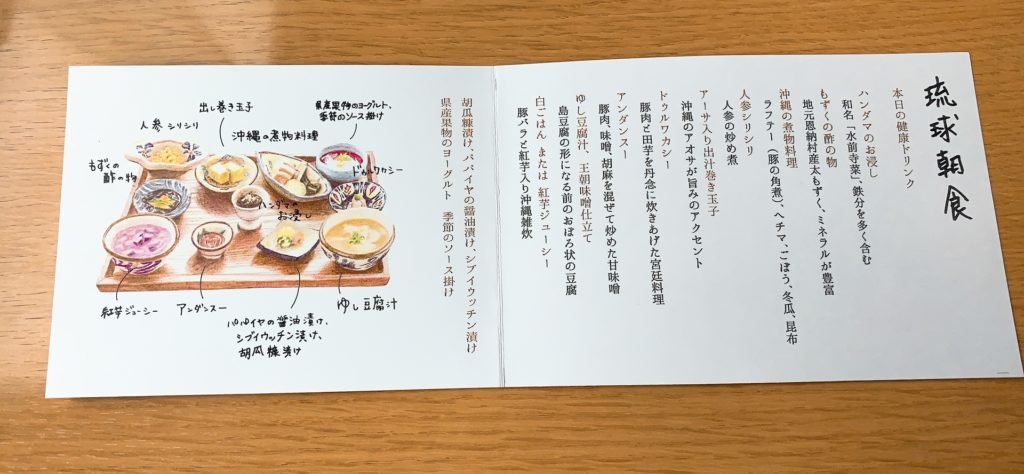 琉球朝食
本日の健康ドリンク
ハンダマのお浸し
和名「水前寺菜」、鉄分を多く含む
もずくの酢の物
地元恩納村産太もずく、ミネラルが豊富
沖縄の煮物料理
ラフテー（豚の角煮）、ヘチマ、ごぼう、冬瓜、昆布
人参シリシリ
人参の炒め煮
アーサ入り出汁巻き玉子
沖縄のアオサが旨みのアクセント
ドゥルワカシー
豚肉と田芋を丹念に炊きあげた宮廷料理
アンダンスー
豚肉、味噌、胡麻を混ぜて炒めた甘味噌
ゆし豆腐汁、王朝味噌仕立て
島豆腐の形になる前のおぼろ状の豆腐
白ごはん または 紅芋ジューシー
豚バラと紅芋入り沖縄雑炊
胡瓜糠漬け、パパイヤの醤油漬け、シブイウッチン漬け
県産果物のヨーグルト 季節のソース掛け
出し巻き玉子
県産果物のヨーグルト、
季節のソース掛け
人参シリシリ
沖縄の煮物料理
もずくの
酢の物
ドゥルワカシー
ハンダマの
お浸し
紅芋ジューシー
アンダンスー
ゆし豆腐汁
パパイヤの醤油漬け、
シブイウッチン漬け、
胡瓜糠漬け